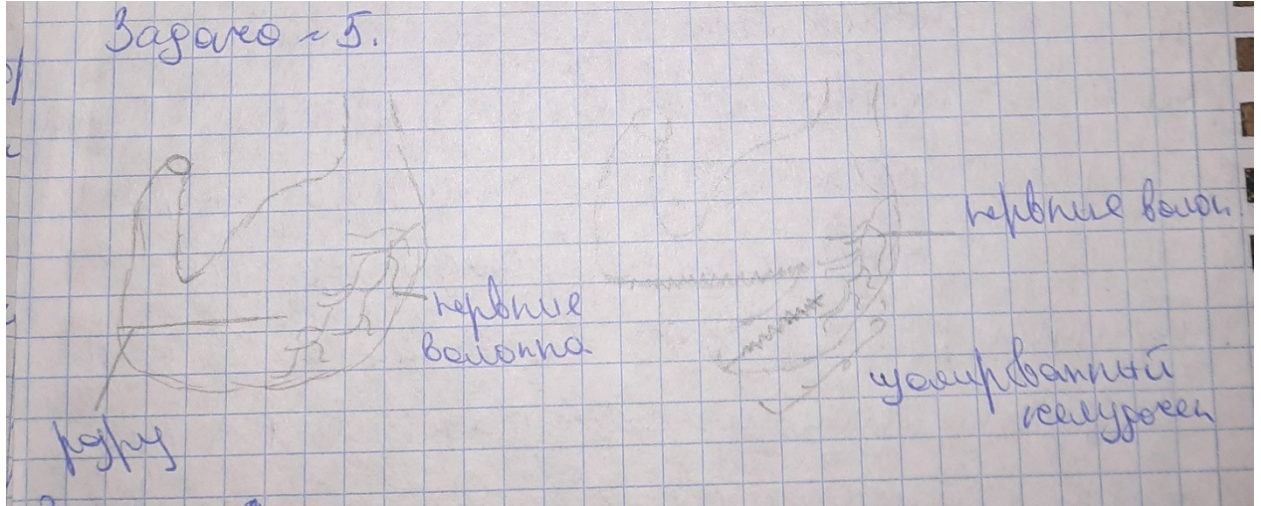 Задача ~ 5.
нервные волок.
нервные
волокна
изолированный
желудочек